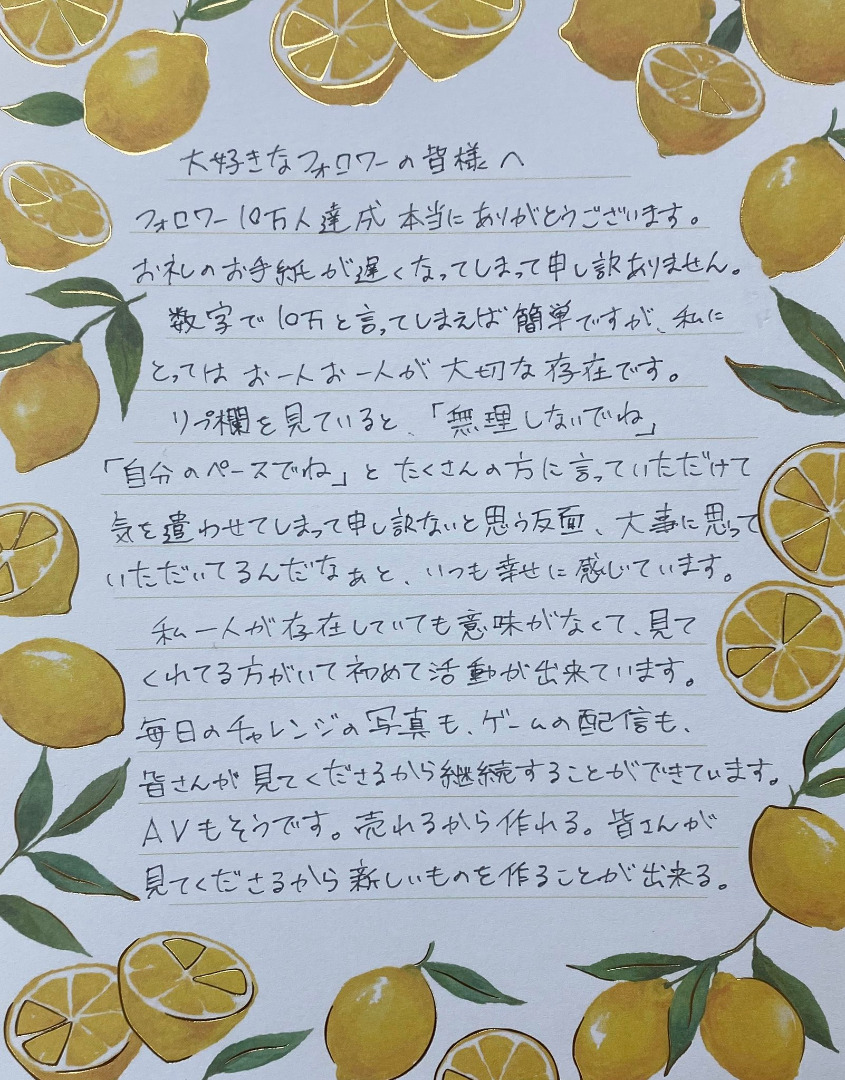 大好きなフォロワーの皆様へ
フォロワー10万人達成 本当にありがとうございます。
お礼のお手紙が遅くなってしまって申し訳ありません。
数字で10万と言ってしまえば簡単ですが、私に
とってはお一人お一人が大切な存在です。
リプ欄を見ていると、「無理しないでね」
「自分のペースでね」とたくさんの方に言っていただけて
気を遣わせてしまって申し訳ないと思う反面、大事に思って
いただいてるんだなぁと、いつも幸せに感じています。
私一人が存在していても意味がなくて、見て
くれてる方がいて初めて活動が出来ています。
毎日のチャレンジの写真も、ゲームの配信も、
皆さんが見てくださるから継続することができています。
AVもそうです。売れるから作れる。皆さんが
見てくださるから新しいものを作ることが出来る。